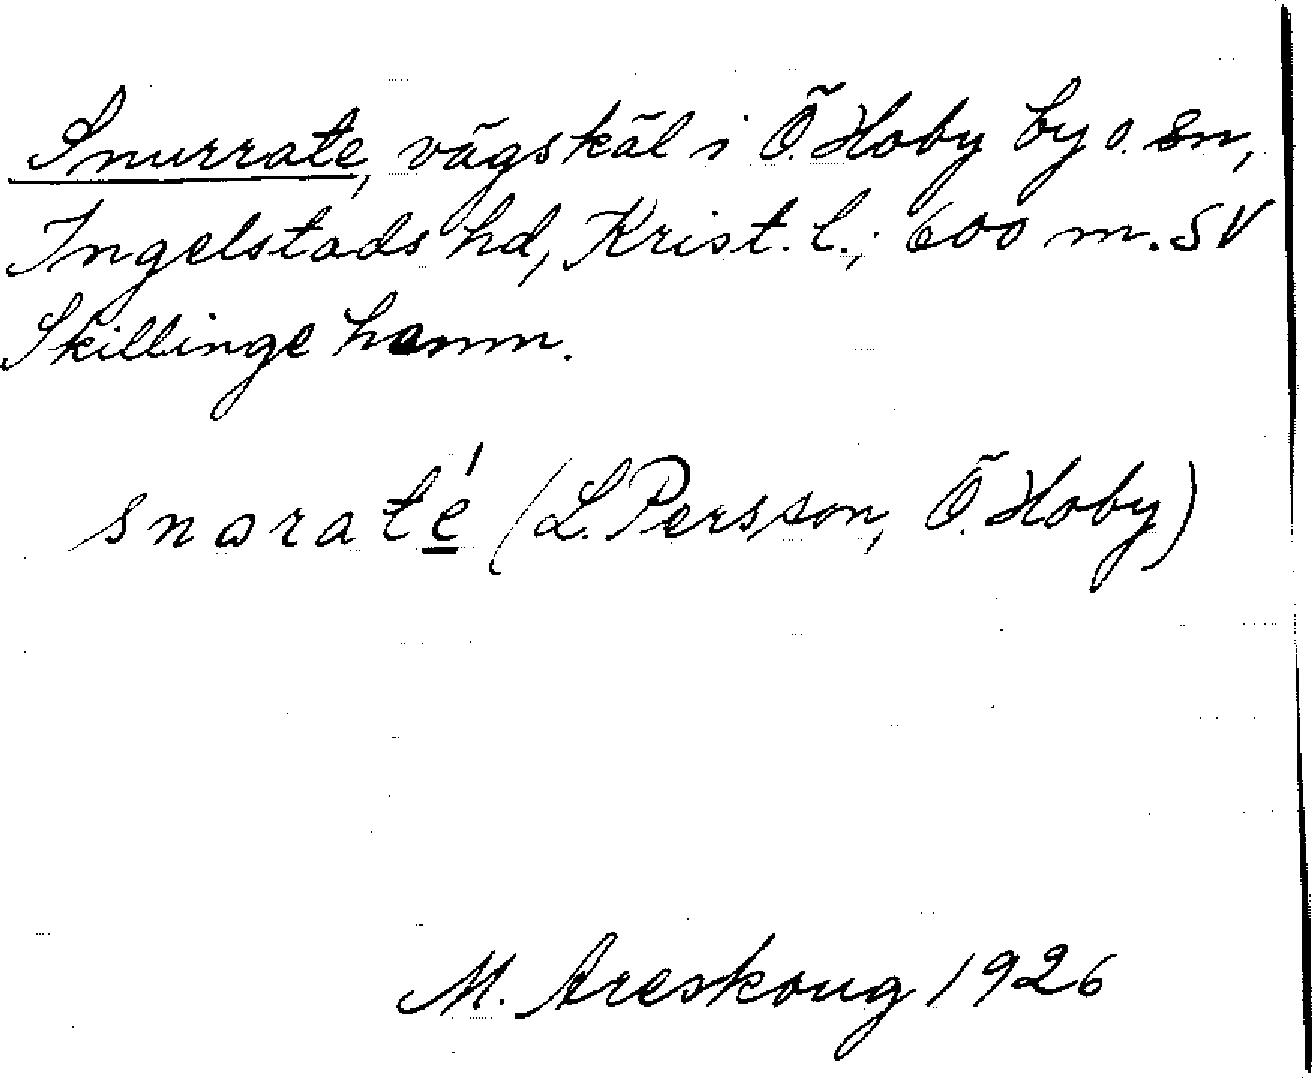 Snurrate, vägskäl i Ö. Hoby by o. sn,
Ingelstads hd, Krist. l.; 600 m. SV
Skillinge hamn.
snaraté̲ (L. Persson, Ö. Hoby)
M. Areskoug 1926